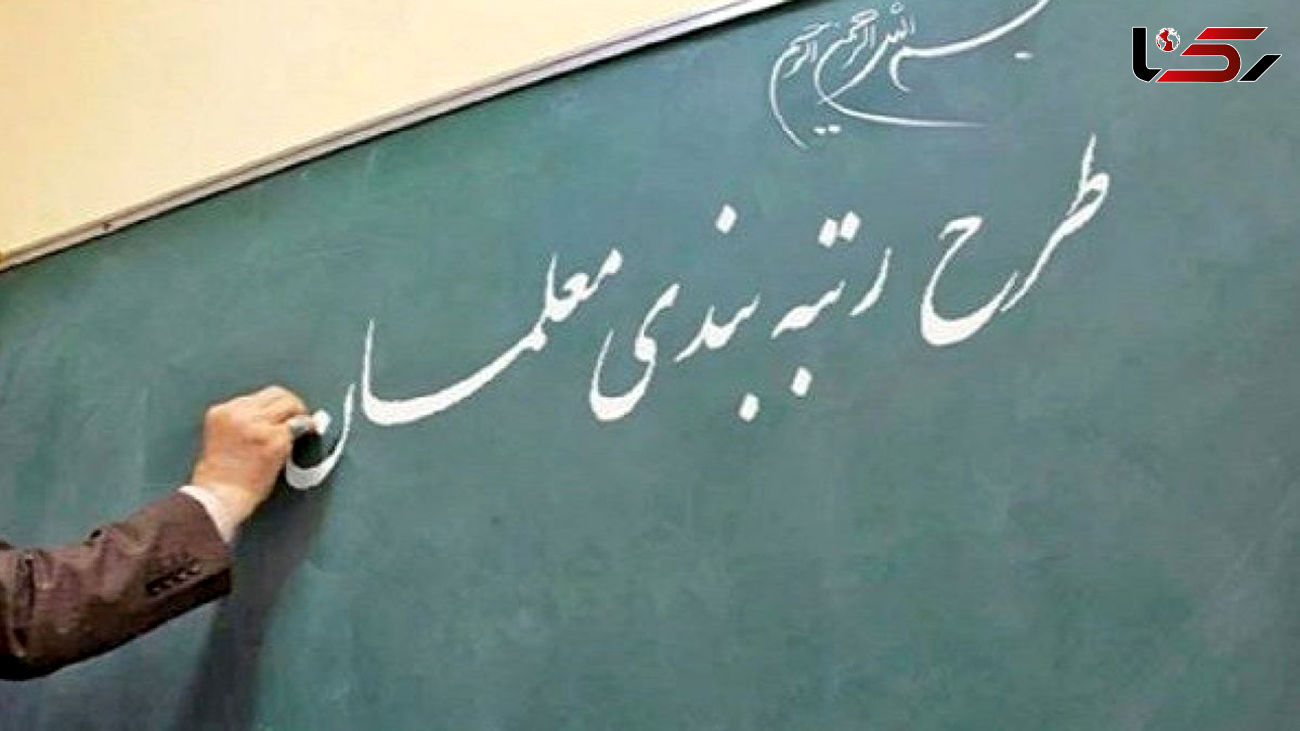 رکنا
بسم الله الرحمن الرحیم
طرح رتبه بندی معلمان